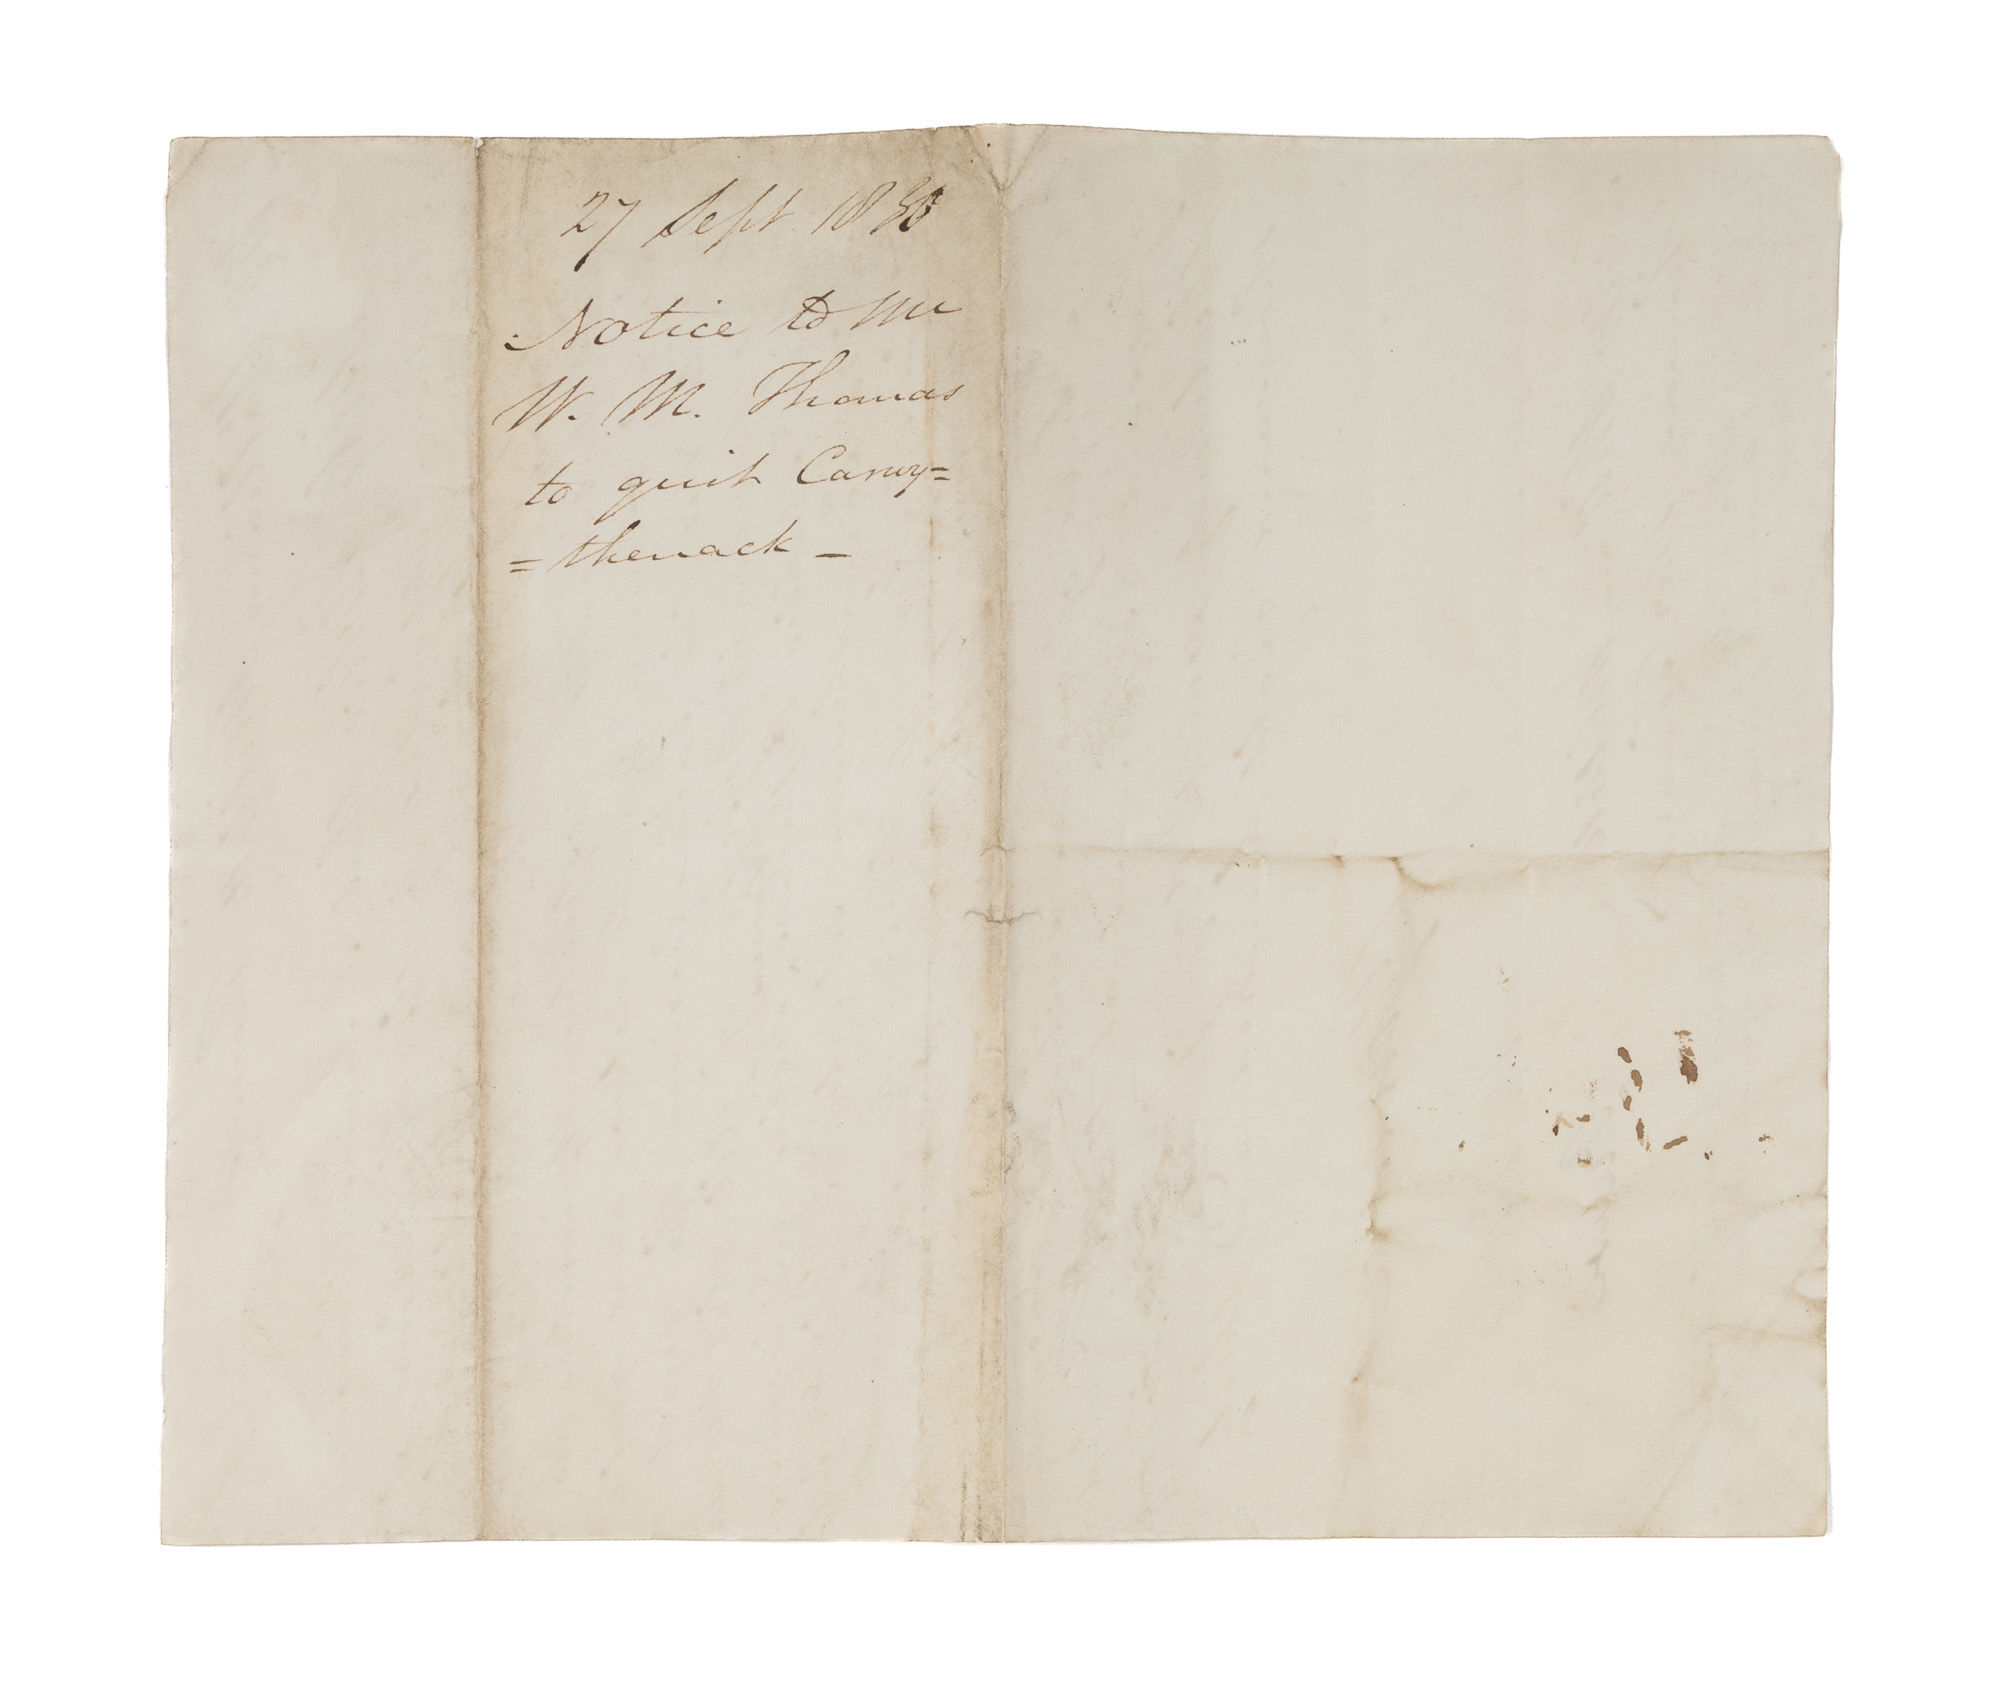 27 Sept 1830
Notice to Mr
W. M. Thomas
to quit Carwy=
=thenack –